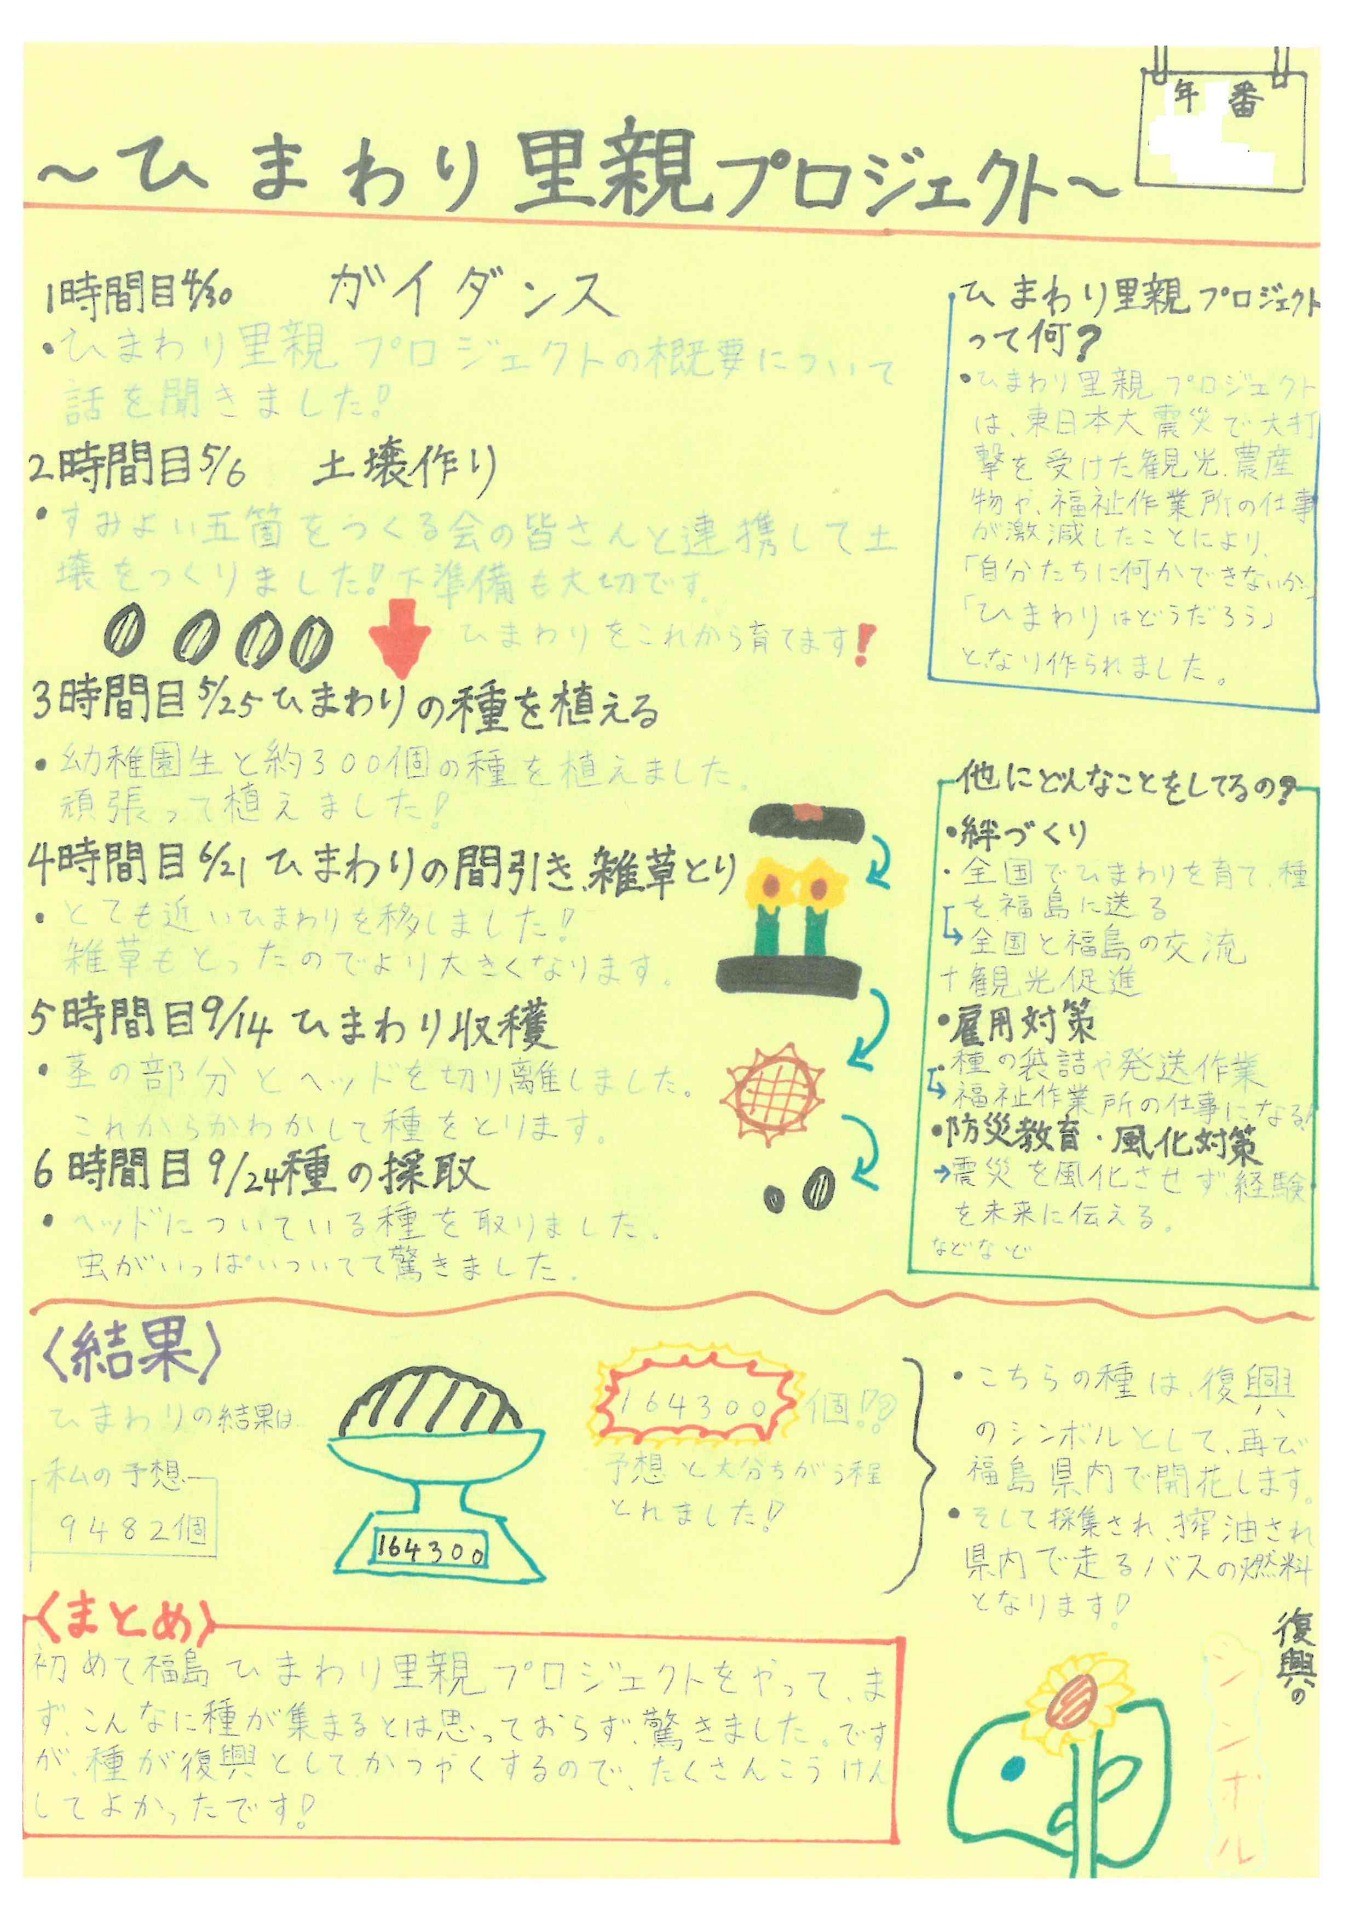 年 番
～ひまわり里親プロジェクト～
1時間目4/30 ガイダンス
・ひまわり里親プロジェクトの概要について
話を聞きました!
2時間目5/6 土壌作り
・すみよい五箇をつくる会の皆さんと連携して土
壌をつくりました!下準備も大切です。
ひまわりをこれから育てます!
3時間目5/25ひまわりの種を植える
・幼稚園生と約300個の種を植えました。
頑張って植えました!
4時間目6/21 ひまわりの間引き、雑草とり
・とても近いひまわりを移しました!
雑草もとったのでより大きくなります。
5時間目9/14 ひまわり収穫
・茎の部分とヘッドを切り離しました。
これからかわかして種をとります。
6時間目9/24種の採取
・ヘッドについている種を取りました。
虫がいっぱいついてて驚きました。
ひまわり里親プロジェクト
って何?
・ひまわり里親プロジェクト
は、東日本大震災で大打
撃を受けた観光、農産
物や、福祉作業所の仕事
が激減したことにより、
「自分たちに何かできないか」
「ひまわりはどうだろう」
となり作られました。
他にどんなことをしてるの?
・絆づくり
・全国でひまわりを育て、種
を福島に送る
→全国と福島の交流
+観光促進
・雇用対策
・種の袋詰や発送作業
→福祉作業所の仕事になる!
・防災教育・風化対策
→震災を風化させず、経験
を未来に伝える。
などなど
〈結果〉
ひまわりの結果は
私の予想
9482個
164300
164300個!?
予想と大分ちがう程
とれました!
・こちらの種は、復興
のシンボルとして、再び
福島県内で開花します。
・そして採集され、搾油され
県内で走るバスの燃料
となります!
〈まとめ〉
初めて福島ひまわり里親プロジェクトをやって、ま
ず、こんなに種が集まるとは思っておらず、驚きました。です
が、種が復興としてかつやくするので、たくさんこうけん
してよかったです!
復興の
シンボル